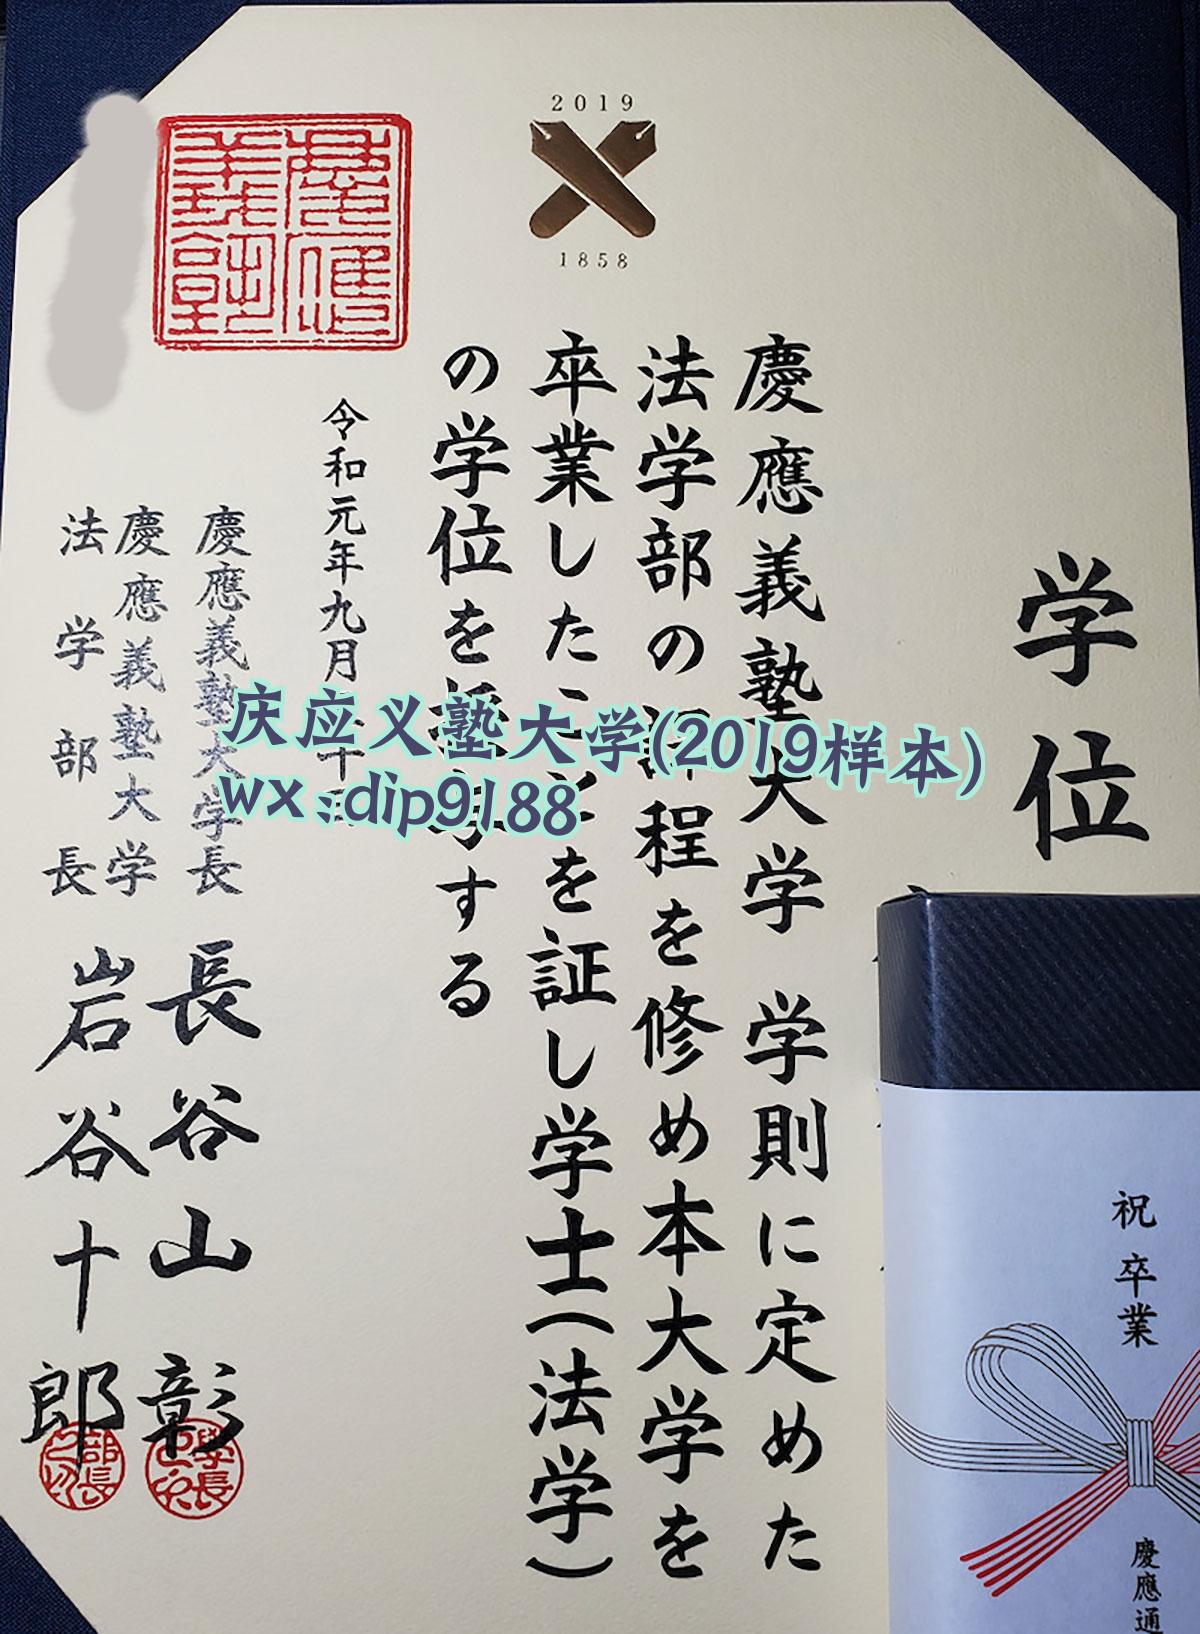 2019
1858
学位
慶應義塾大学 学則に定めた
法学部の課程を修め本大学を
卒業したことを証し学士(法学)
の学位を授与する
令和元年九月
慶應義塾大学長 長谷山彰
慶應義塾大学
法学部長 岩谷十郎
慶應義塾
学長
部長
庆应义塾大学(2019样本)
wx:dip9188
祝 卒業
慶應通